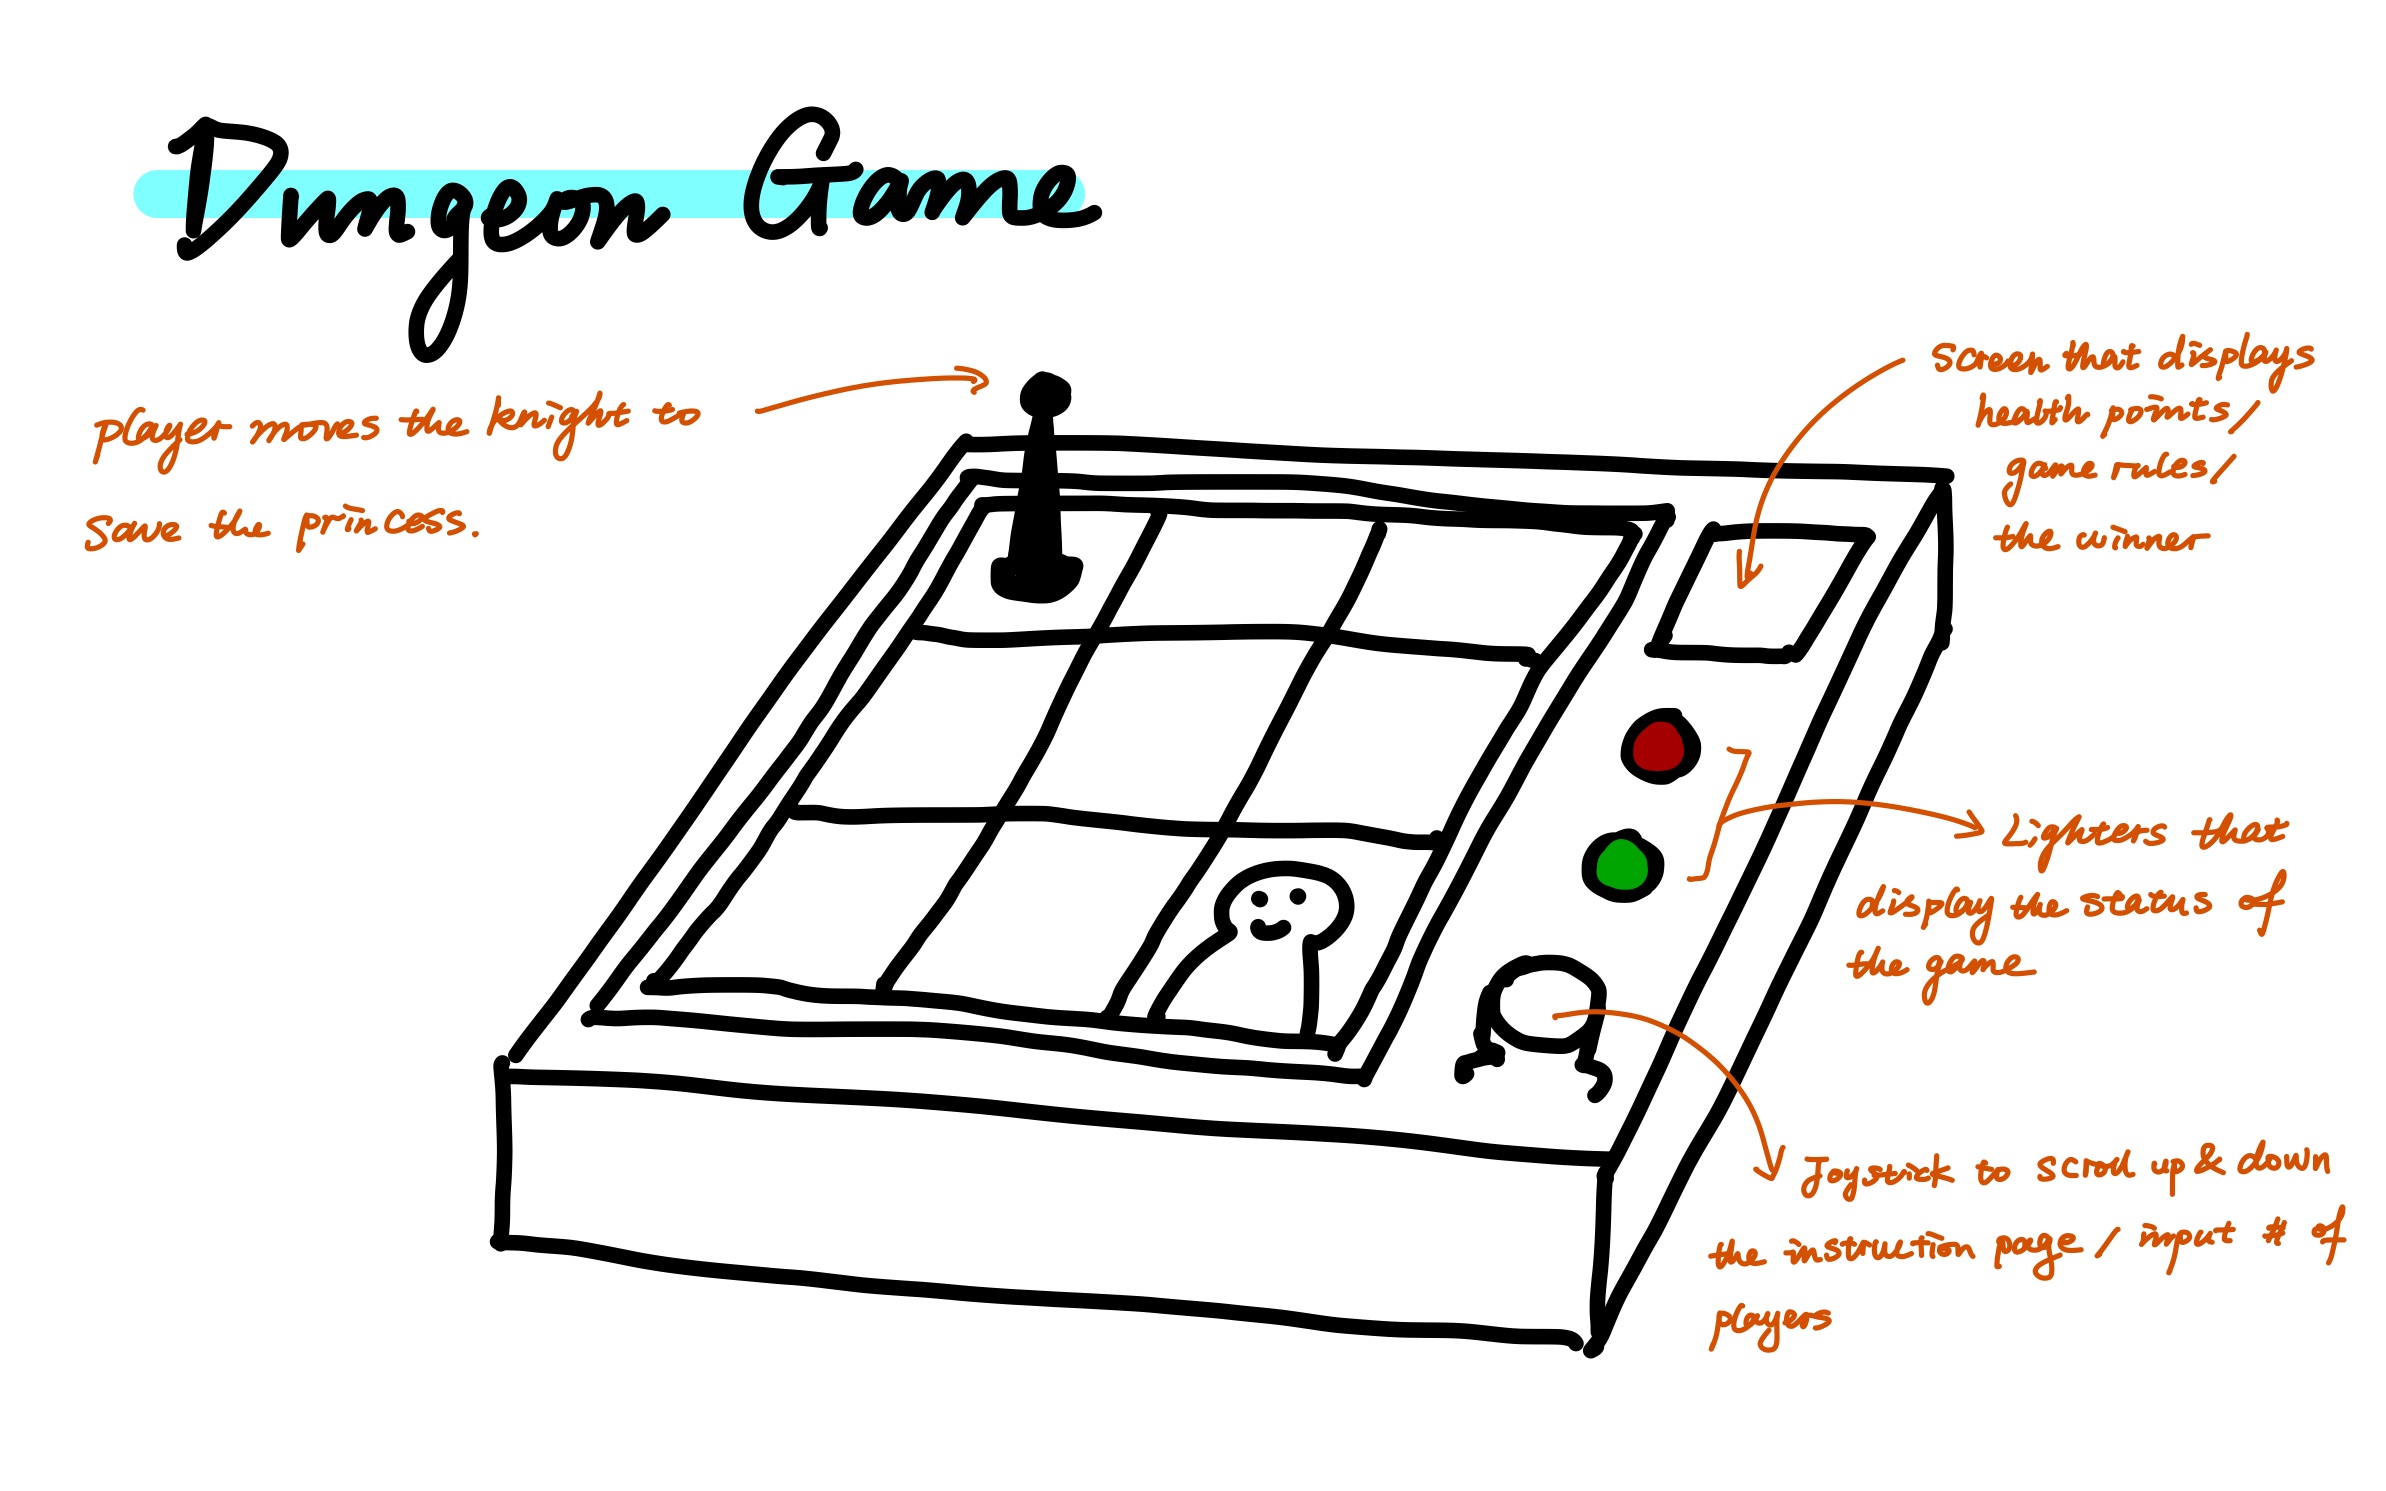 Dungeon Game
player moves the knight to
save the princess.
screen that displays
health points/
game rules/
the winner
Lighters that
display the status of
the game
Joystick to scroll up & down
the instruction page / input # of
players